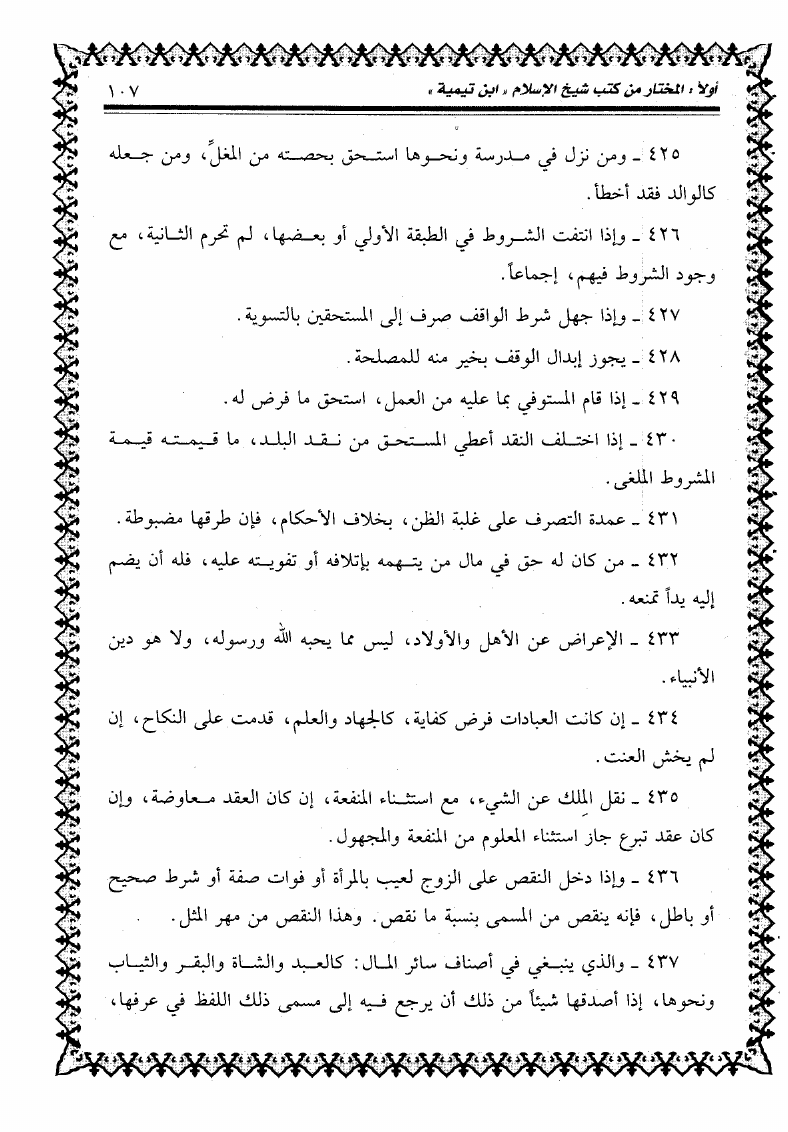 أولاً : المختار من كتب شيخ الإسلام « ابن تيمية » ١٠٧
٤٢٥ ـ ومن نزل في مـدرسة ونحـوها استـحق بحصـته من المغلِّ، ومن جـعله
كالوالد فقد أخطأ.
٤٢٦ ـ وإذا انتفت الشـروط في الطبقة الأولي أو بعـضها، لم تحرم الثـانية، مع
وجود الشروط فيهم، إجماعاً.
٤٢٧ ـ وإذا جهل شرط الواقف صرف إلى المستحقين بالتسوية.
٤٢٨ ـ يجوز إبدال الوقف بخير منه للمصلحة.
٤٢٩ ـ إذا قام المستوفي بما عليه من العمل، استحق ما فرض له.
٤٣٠ ـ إذا اختـلف النقد أعطي المسـتحـق من نـقـد البلـد، ما قـيـمتـه قيـمة
المشروط الملغى.
٤٣١ ـ عمدة التصرف على غلبة الظن، بخلاف الأحكام، فإن طرقها مضبوطة.
٤٣٢ ـ من كان له حق في مال من يتـهمه بإتلافه أو تفويـته عليه، فله أن يضم
إليه يداً تمنعه.
٤٣٣ ـ الإعراض عن الأهل والأولاد، ليس مما يحبه الله ورسوله، ولا هو دين
الأنبياء.
٤٣٤ ـ إن كانت العبادات فرض كفاية، كالجهاد والعلم، قدمت على النكاح، إن
لم يخش العنت.
٤٣٥ ـ نقل الملك عن الشيء، مع استثـناء المنفعة، إن كان العقد مـعاوضة، وإن
كان عقد تبرع جاز استثناء المعلوم من المنفعة والمجهول.
٤٣٦ ـ وإذا دخل النقص على الزوج لعيب بالمرأة أو فوات صفة أو شرط صحيح
أو باطل، فإنه ينقص من المسمى بنسبة ما نقص. وهذا النقص من مهر المثل.
٤٣٧ ـ والذي ينبـغي في أصناف سائر المـال: كالعبد والشـاة والبقـر والثيـاب
ونحوها، إذا أصدقها شيئاً من ذلك أن يرجع فـيه إلى مسمى ذلك اللفظ في عرفها،